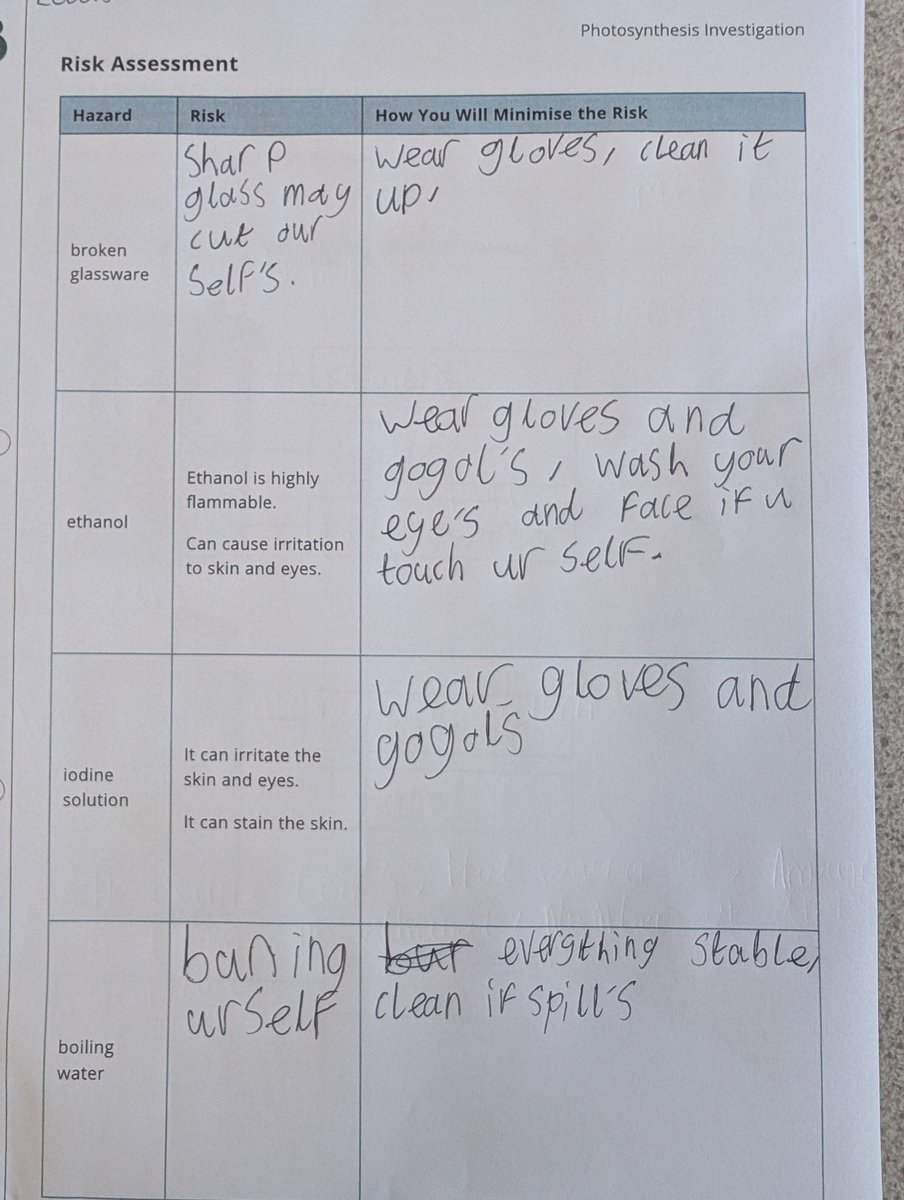 Photosynthesis Investigation
Risk Assessment
Hazard Risk How You Will Minimise the Risk
broken
glassware
Sharp
glass may
cut our
self's.
Wear gloves, clean it
up,
ethanol
Ethanol is highly
flammable.
Can cause irritation
to skin and eyes.
Wear gloves and
gogal's, wash your
eye's and face if u
touch ur self.
iodine
solution
It can irritate the
skin and eyes.
It can stain the skin.
Wear gloves and
gogals
boiling
water
baning
urself
everything stable,
clean if spill's